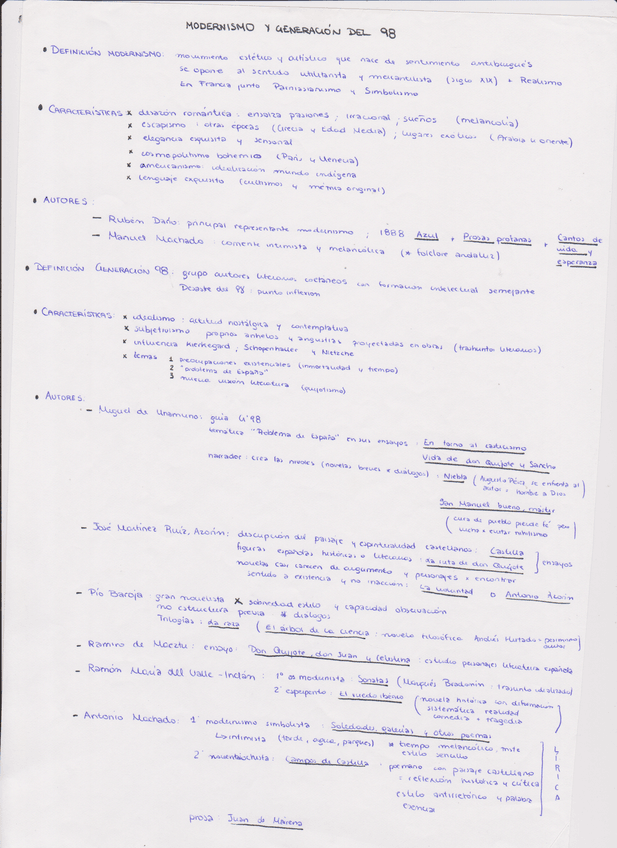 MODERNISMO Y GENERACIÓN DEL 98
• DEFINICIÓN MODERNISMO: movimiento estético y artístico que nace de sentimiento antiburgués
se opone al sentido utilitarista y mercantilista (siglo XIX) + Realismo
En Francia junto Parnasianismo y Simbolismo
• CARACTERÍSTICAS x desazón romántica: ensalza pasiones, irracional, sueños (melancolía)
x escapismo: otras épocas (Grecia y Edad Media); lugares exóticos (Arabia u oriente)
x elegancia exquisita y sensorial
x cosmopolitismo bohemio (París y Venecia)
x americanismo: idealización mundo indígena
x lenguaje exquisito (cultismos y métrica original)
• AUTORES:
– Rubén Darío: principal representante modernismo; 1888 Azul + Prosas profanas + Cantos de vida y esperanza
– Manuel Machado: corriente intimista y melancólica (* folclore andaluz)
• DEFINICIÓN GENERACIÓN 98: grupo autores literarios coetáneos con formación intelectual semejante
Desastre del 98: punto inflexión
• CARACTERÍSTICAS: x idealismo: actitud nostálgica y contemplativa
x subjetivismo propios anhelos y angustias proyectadas en obras (trasunto literarios)
x influencia Kierkegard, Schopenhauer y Nietzche
x temas 1 preocupaciones existenciales (inmortalidad y tiempo)
2 "problema de España"
3 nueva literatura (quijotismo)
• AUTORES:
– Miguel de Unamuno: guía G'98
temática "Problema de España" en sus ensayos: En torno al casticismo
Vida de don Quijote y Sancho
narrador: crea las nivolas (novelas breves + diálogos) = Niebla (Augusto Pérez se enfrenta al
autor = hombre a Dios
San Manuel bueno, mártir
(cura de pueblo pierde fe pero
lucha x evitar nihilismo
– José Martínez Ruiz, Azorín: descripción del paisaje y espiritualidad castellanos: Castilla
figuras españolas históricas o literarios: La ruta de don Quijote ] ensayos
novelas casi carecen de argumento y personajes x encontrar
sentido a existencia y no inacción: La voluntad o Antonio Azorín
– Pío Baroja gran novelista x sobriedad estilo y capacidad observación
no estructura previa * diálogos
Trilogías: La raza (El árbol de la ciencia: novela filosófica Andrés Hurtado =
– Ramiro de Maeztu: ensayo: Don Quijote, don Juan y Celestina: estudio personajes literatura española
– Ramón María del Valle-Inclán: 1ª os modernista: Sonatas (Marqués Bradomín: Trasunto idealizado)
2ª esperpento: El ruedo ibérico (novela histórica con deformación
sistemática realidad
comedia + tragedia
– Antonio Machado: 1ª modernismo simbolista: Soledades, galerías y otros poemas
intimista (tarde, agua, parques) * tiempo melancólico, triste
estilo sencillo
2ª noventaiochista: Campos de Castilla: poemario con paisaje castellano
= reflexión histórica y crítica
estilo antirretórico y palabra
esencial
LÍRICA
prosa: Juan de Mairena